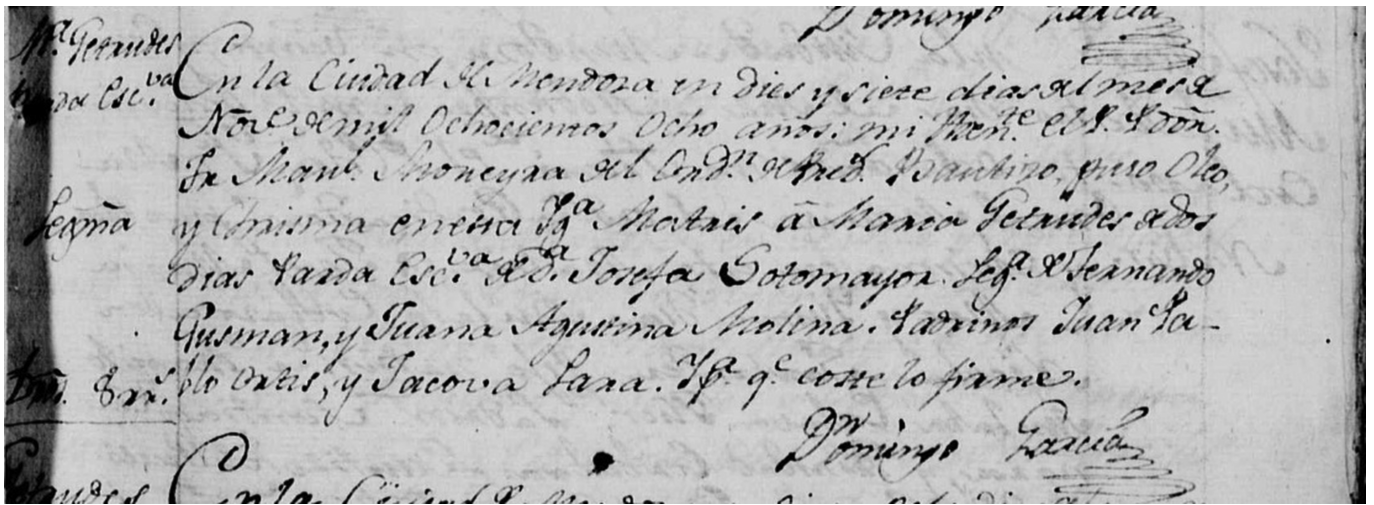 Domingo Garcia
Mª Getrudes
Parda Esc.va
En la Ciudad de Mendosa en dies y siete dias del mes de
Nov.e de mil Ochocientos Ocho años: mi Then.te el R. P. don.
Fr. Man.l Moneyra del Ord.n de Pred.s Bautiso, puso Oleo,
Legma
y Chrisma en esta Ygª Matris â Maria Getrudes de dos
dias Parda Esc.va de D.ª Josefa Sotomayor. Leg.ª de Fernando
Gusman, y Juana Agustina Molina. Padrinos Juan Pa-
blo Ortis, y Jacova Lara. Y pª q.e coste lo firme.
Drs. 8 rr.s
D.n
Domingo Garcia
En la Ciudad de